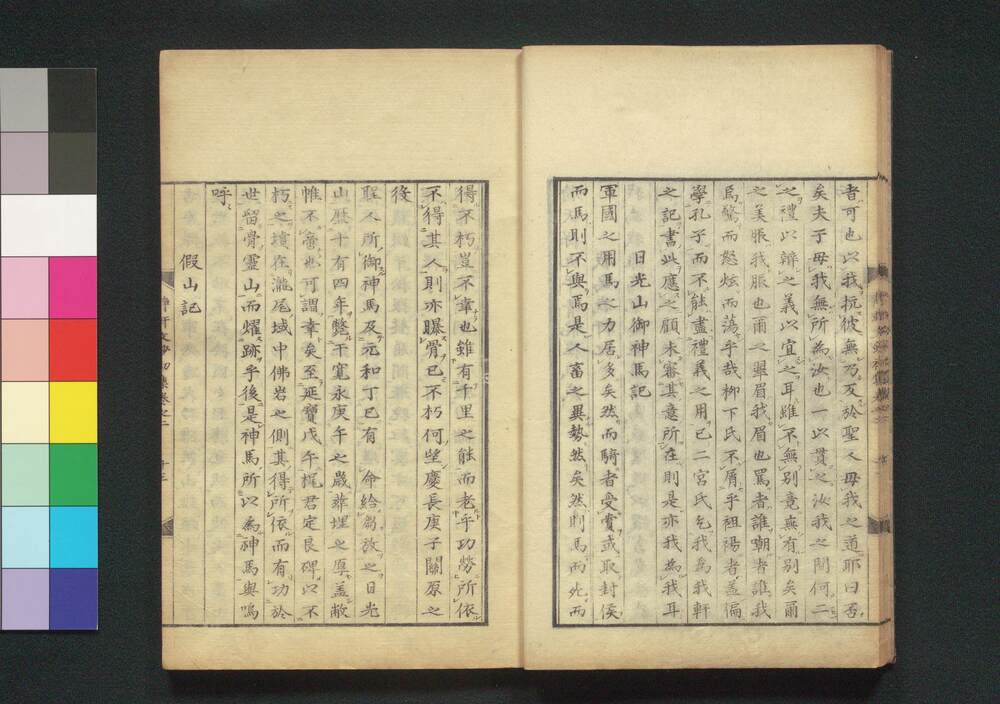 者可也以我抗彼無乃反於聖人毋我之道耶曰否
矣夫子毋我無所為汝也一以貫之汝我之間何二
之禮以辨之義以宜之耳雖不無別竟無有別矣爾
之美脹我脹也爾之顰眉我眉也罵者誰嘲者誰我
焉驚而怒炫而蕩乎哉柳下氏不屑乎袒裼者蓋偏
學孔子而不能盡禮義之用已二宮氏乞我為我軒
之記書此應之顧未審其意所在則是亦我為我耳
日光山御神馬記
軍國之用馬之力居多矣然而騎者受賞或取封侯
而馬則不與焉是人畜之異勢然矣然則馬而死而
得不朽豈不幸也雖有千里之能而老乎功勞所依
不得其人則亦曝骨已不朽何望慶長庚子關原之
後
聖人所御神馬及元和丁巳有 命給芻放之日光
山歷十有四年斃于寬永庚午之歲葬埋之厚蓋敝
帷不啻也可謂幸矣至延寶戊午梶君定良碑以不
朽之墳在瀧尾域中佛岩之側其得所依而有功於
世留骨靈山而燿跡乎後是神馬所以為神馬與嗚
呼
假山記